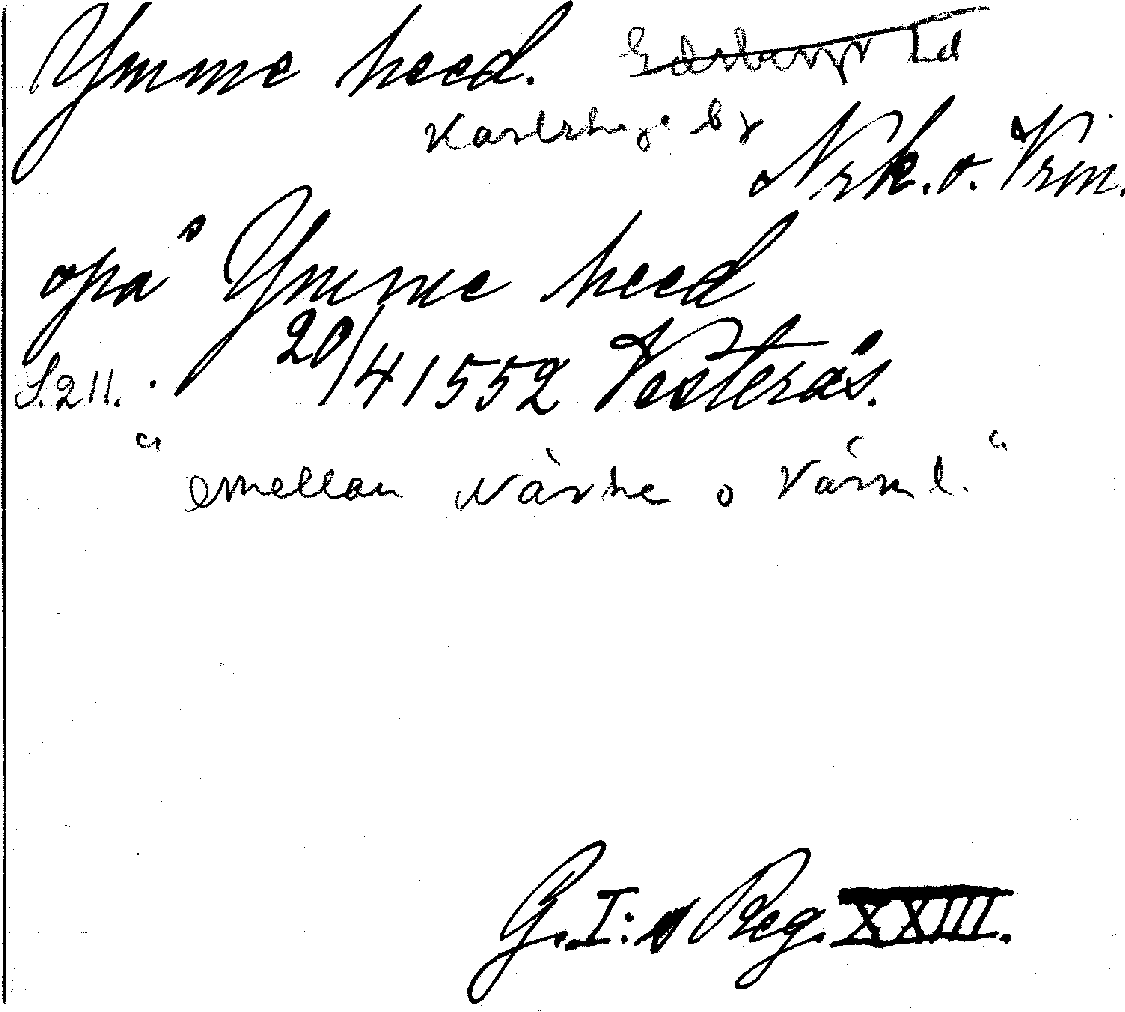 Ymme heed. Edsbergs hd
Karlskoga bg
Nrk. o. Vrm.
opå Ymme heed
S. 211. 20/4 1552 Vesterås.
"emellan Närke o Värml."
G. I:s Reg. XXIII.